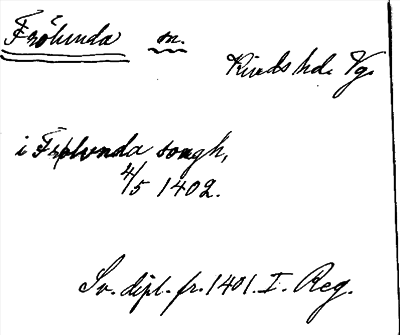 Frölunda sn.
Kinds hd. Vg.
i Frølunda songh,
4/5 1402.
Sv. dipl. fr. 1401. I. Reg.